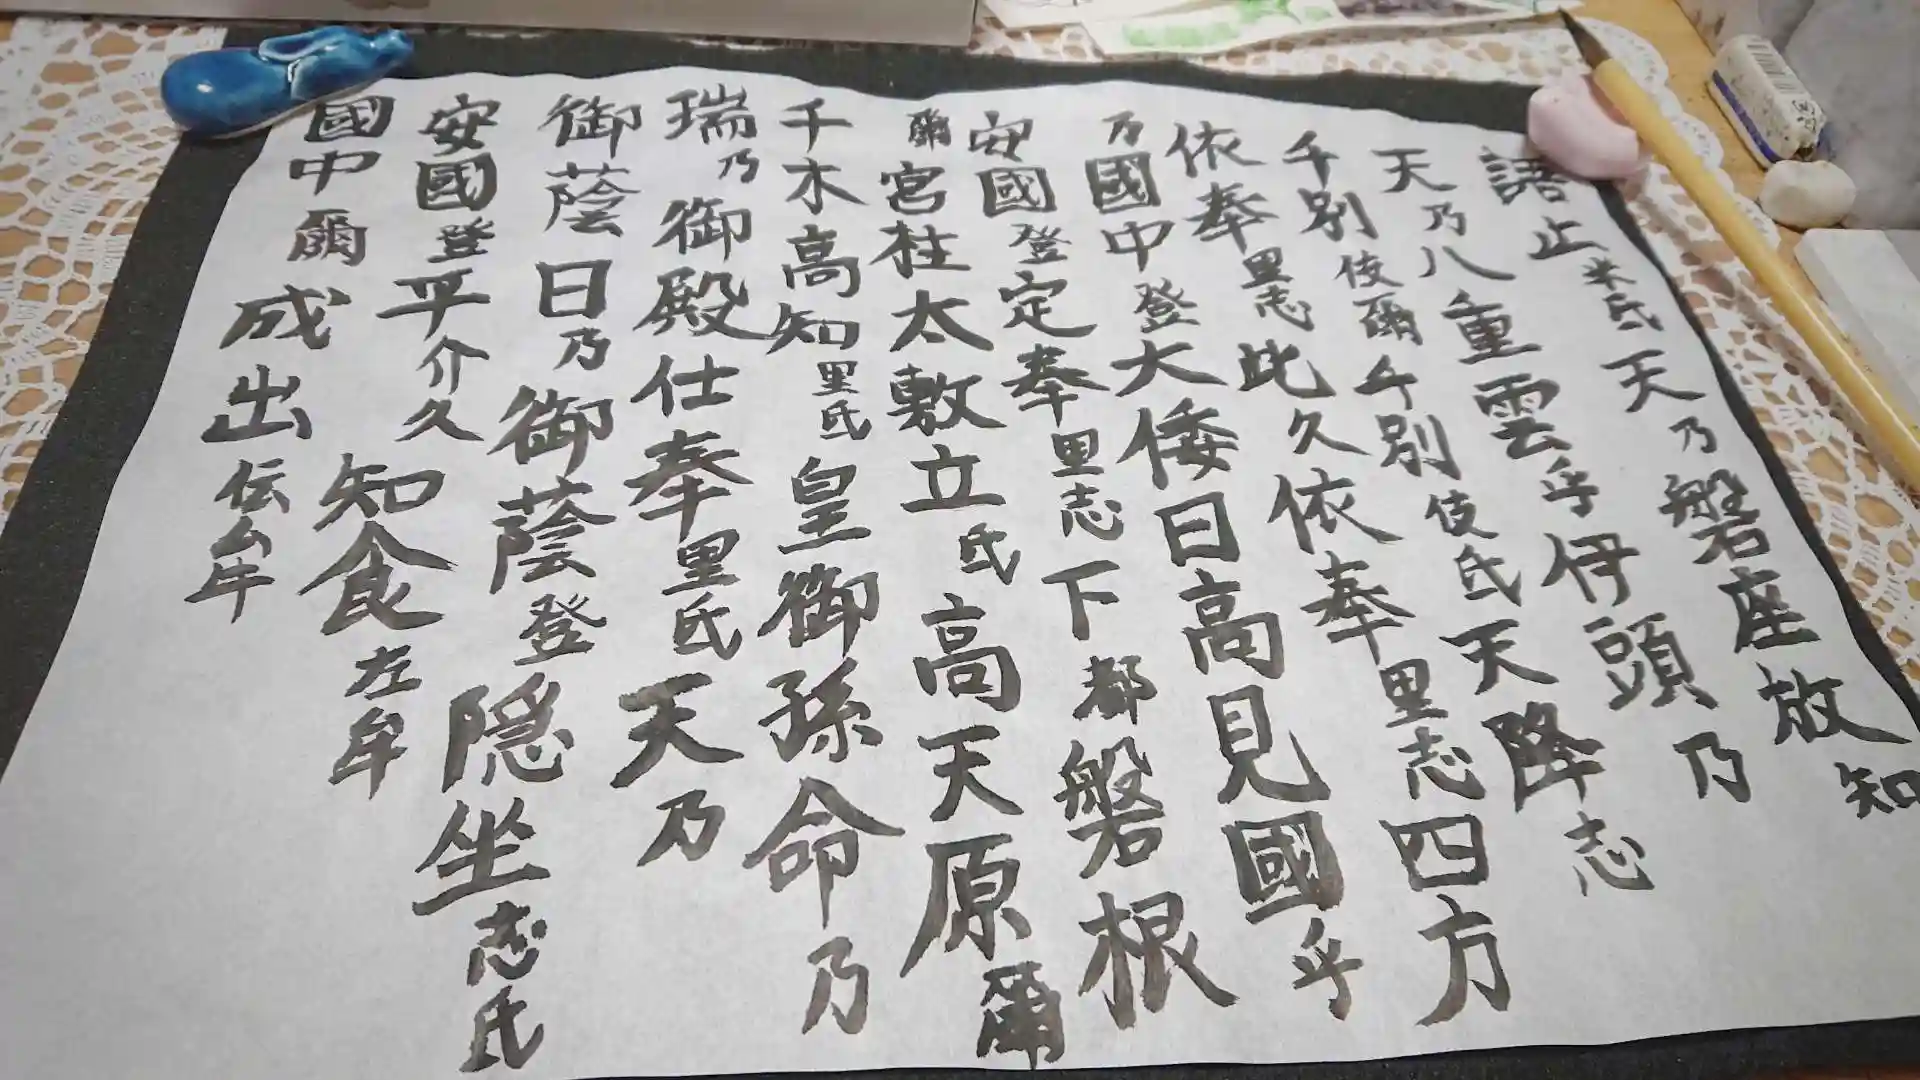 語止米氐天乃磐座放知
天乃八重雲乎伊頭乃
千別伎爾千別伎氐天降志
依奉里志此久依奉里志四方
乃國中登大倭日高見國乎
安國登定奉里志下都磐根
爾宮柱太敷立氐高天原爾
千木高知里氐皇御孫命乃
瑞乃御殿仕奉里氐天乃
御蔭日乃御蔭登隠坐志氐
安國登平介久知食左牟
國中爾成出伝牟